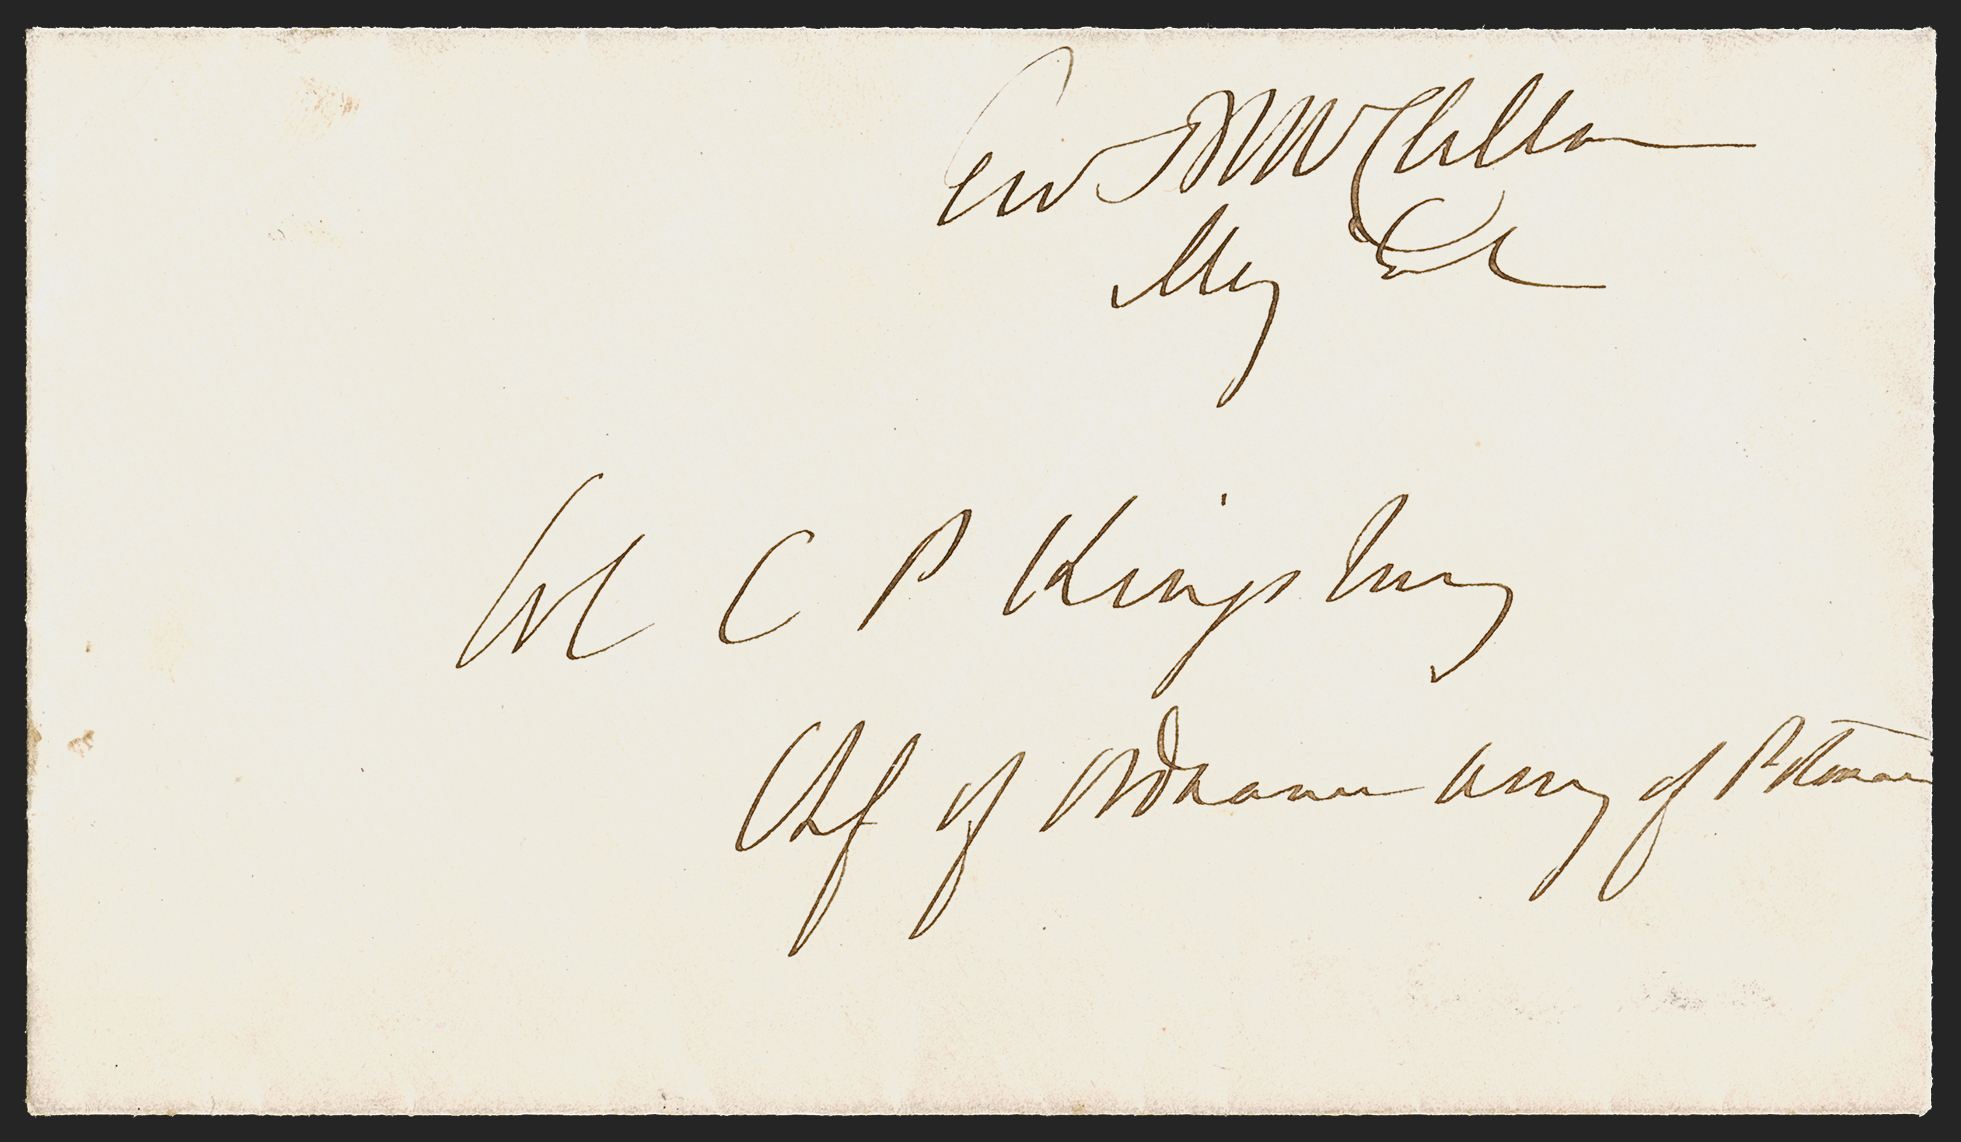 Geo B McClellan
Maj Genl
Col C P Kingsbury
Chf of Ordnance Army of Potomac